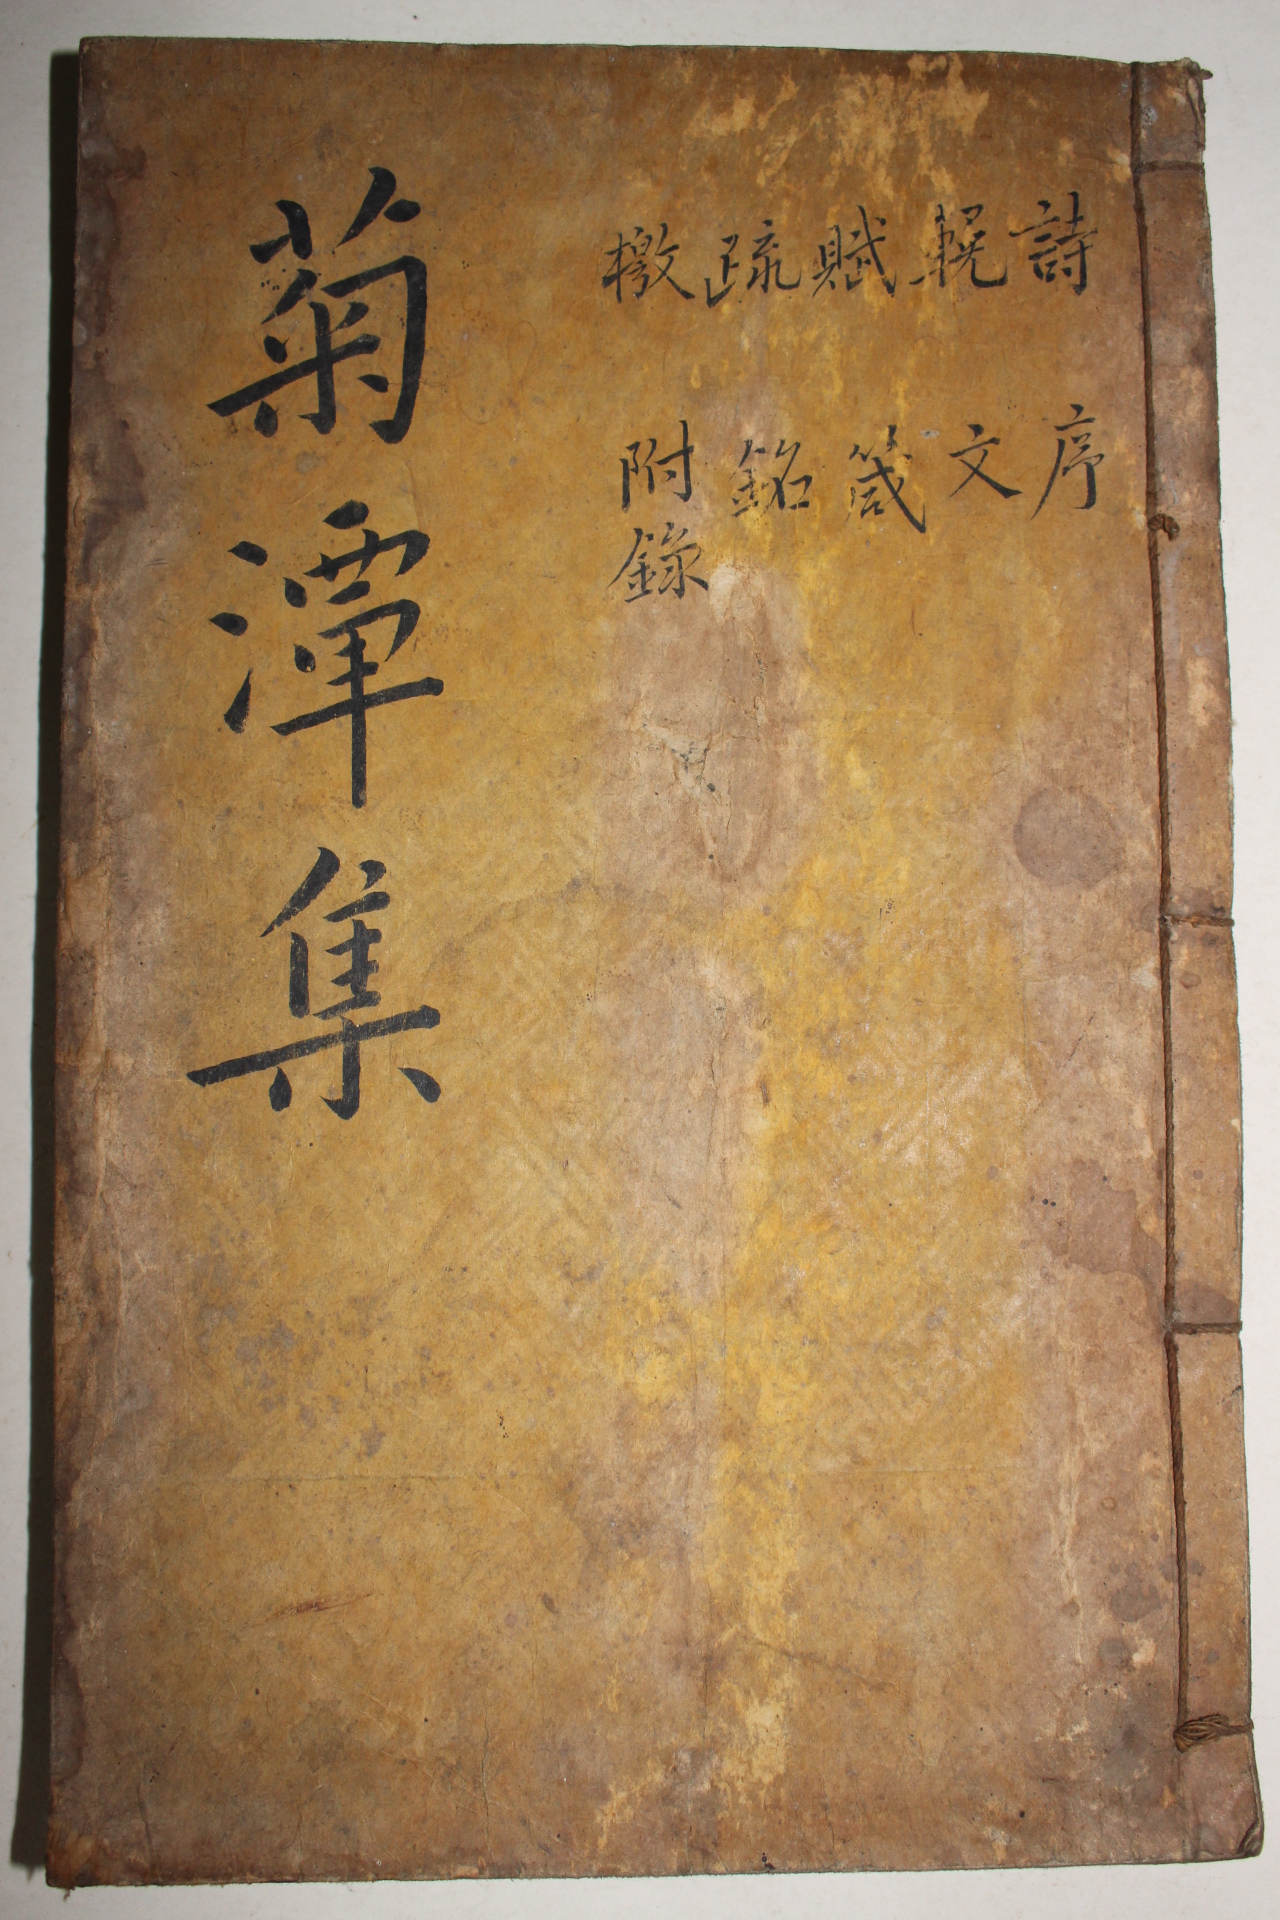 詩 輓 賦 疏 檄
序 文 箴 銘 附錄
菊潭集